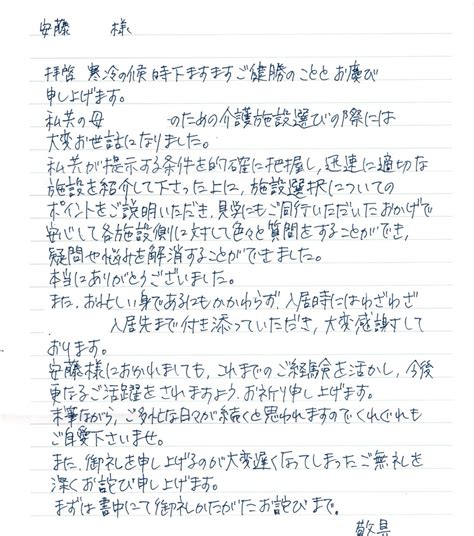 安藤　　様
拝啓 寒冷の候 時下ますますご健勝のこととお慶び
申し上げます。
私共の母　　　　のための介護施設選びの際には
大変お世話になりました。
私共が提示する条件を的確に把握し、迅速に適切な
施設を紹介して下さった上に、施設選択についての
ポイントをご説明いただき、見学にもご同行いただいたおかげで
安心して各施設側に対して色々と質問をすることができ、
疑問や悩みを解消することができました。
本当にありがとうございました。
また、お忙しい身であるにもかかわらず、入居時にはわざわざ
入居先まで付き添っていただき、大変感謝して
おります。
安藤様におかれましても、これまでのご経験を活かし、今後
更なるご活躍をされますよう、お祈り申し上げます。
末筆ながら、ご多忙な日々が続くと思われますのでくれぐれも
ご自愛下さいませ。
また、御礼を申し上げるのが大変遅くなってしまったご無礼を
深くお詫び申し上げます。
まずは書中にて御礼かたがたお詫びまで。
敬具